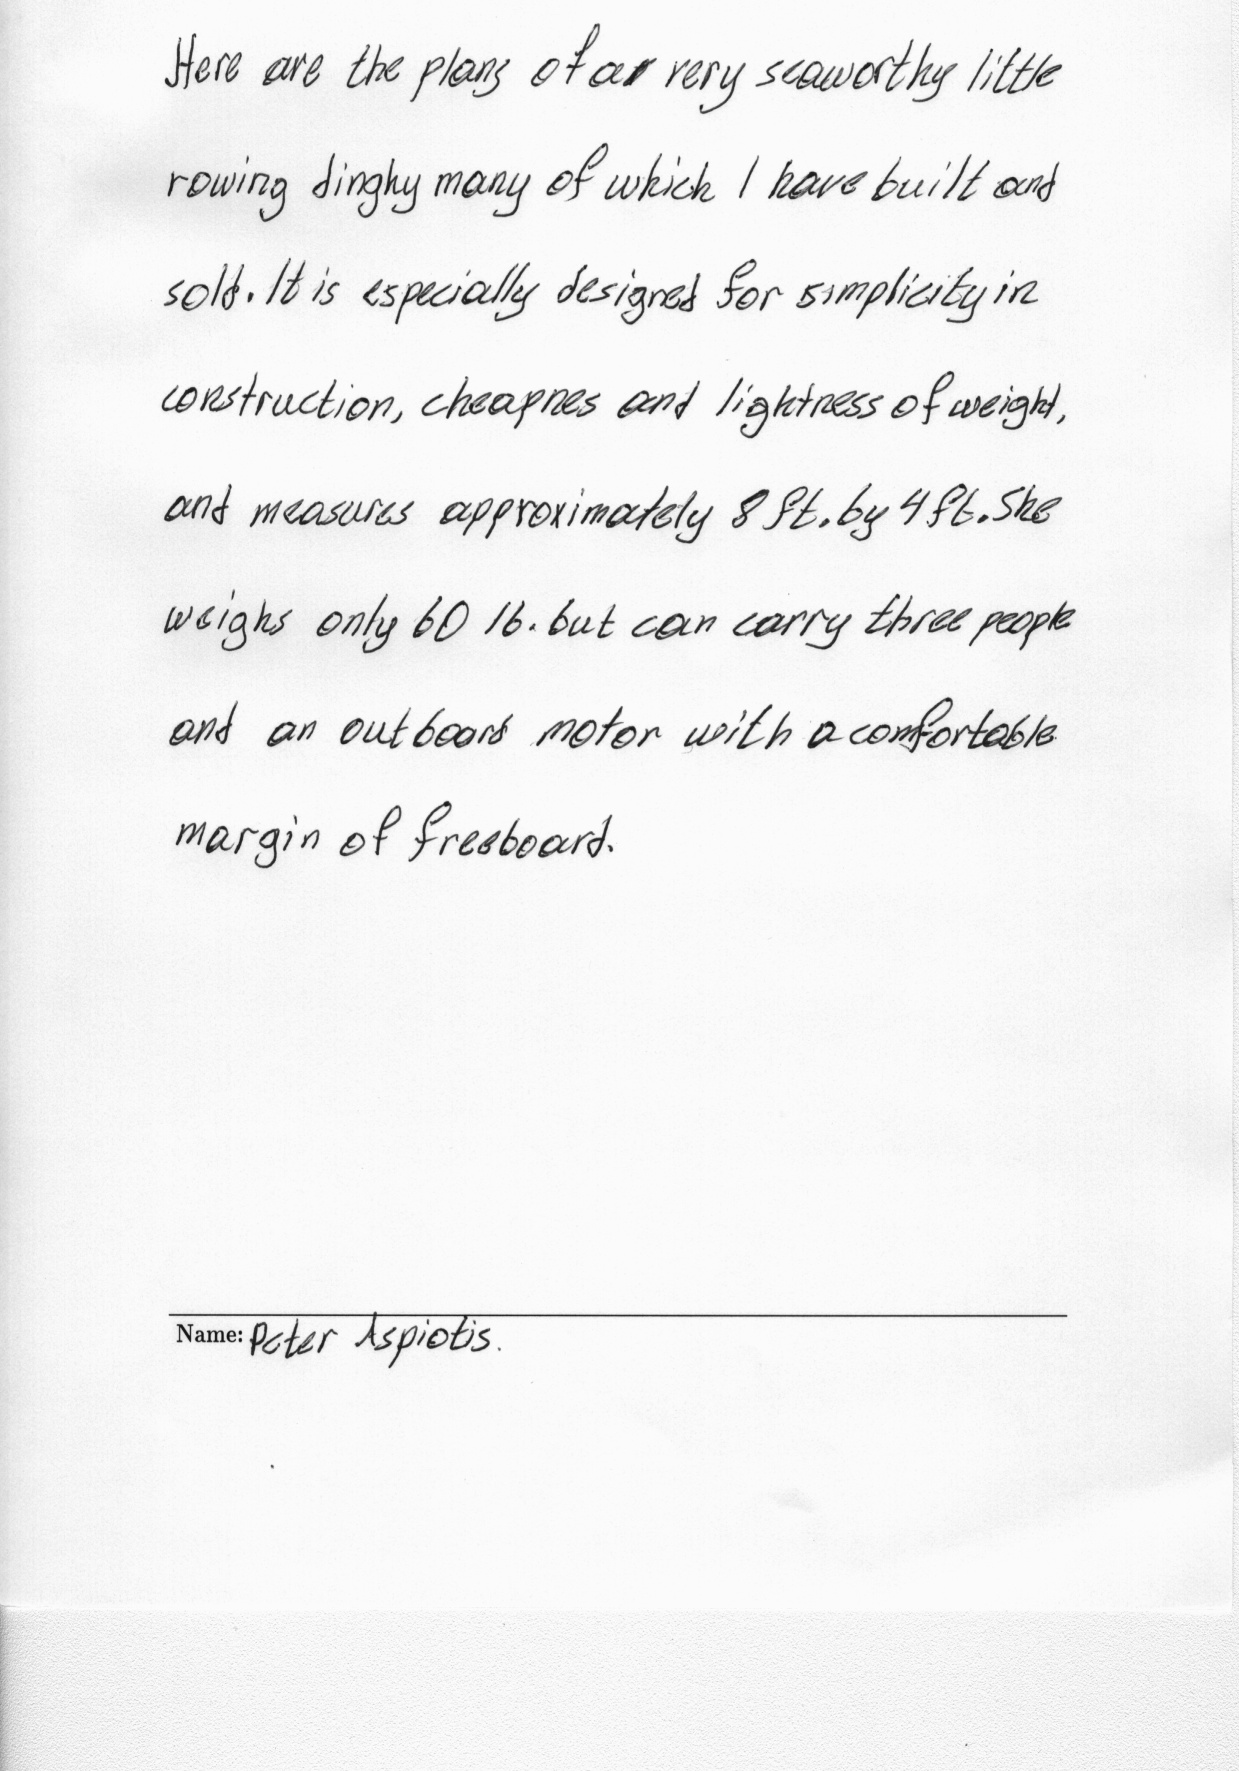 Here are the plans of a very seaworthy little
rowing dinghy many of which I have built and
sold. It is especially designed for simplicity in
construction, cheapnes and lightness of weight,
and measures approximately 8 ft. by 4 ft. She
weighs only 60 lb. but can carry three people
and an outboard motor with a comfortable
margin of freeboard.
Name: Peter Aspiotis.